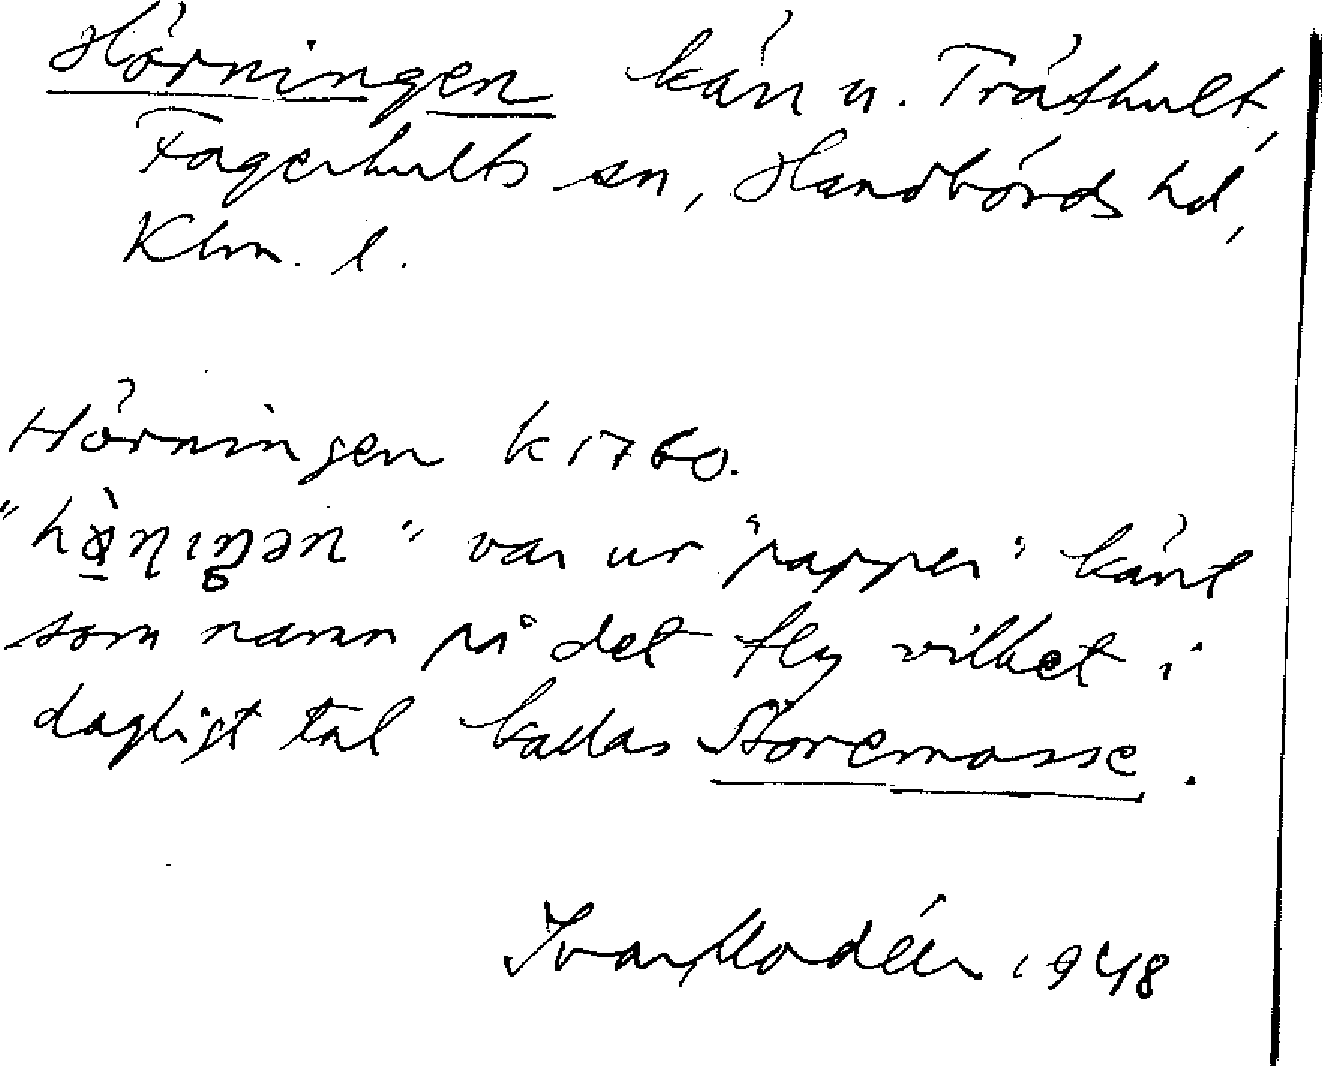 Hörningen kärr u. Träthult,
Fagerhults sn, Handbörds hd,
Klm. l.
Hörningen k 1760.
" var ur "papper" känt
som namn på det fly vilket i
dagligt tal kallas Storemosse.
Ivar Modéer 1948